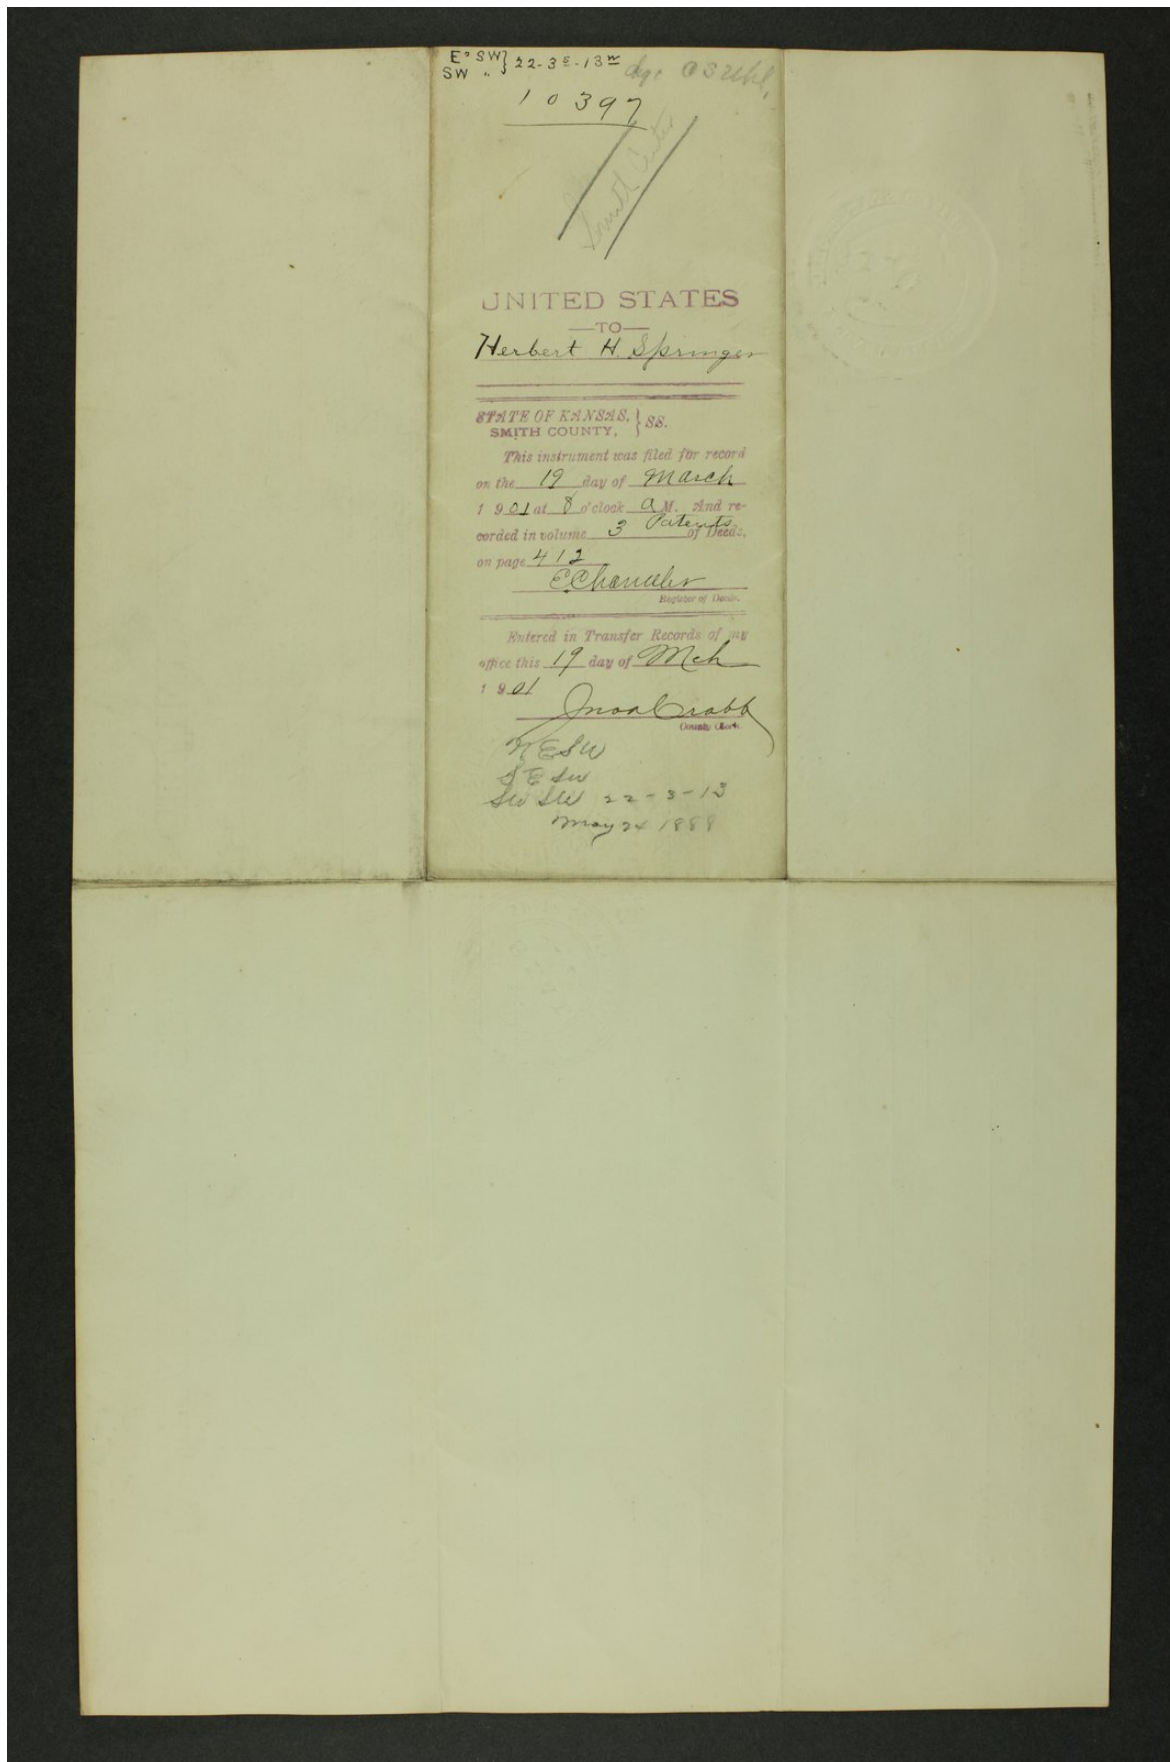 E² SW } 22-3 S-13 W
SW „ }
10397
Smith Center
UNITED STATES
—TO—
Herbert H. Springer
STATE OF KANSAS, } SS.
SMITH COUNTY,
This instrument was filed for record
on the 19 day of March
1901 at 8 o'clock a M. And re-
corded in volume 3 Patents of Deeds,
on page 412
E. Chandler
Register of Deeds.
Entered in Transfer Records of my
office this 19 day of Mch
1901
Jno A Crabb
County Clerk.
NESW
SE SW
SW SW 22-3-13
May 24 1888